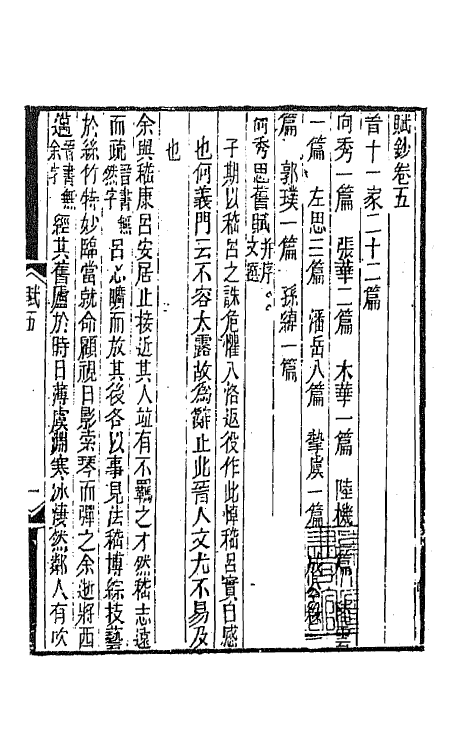 賦鈔卷五
晉十一家二十二篇
向秀一篇 張華二篇 木華一篇 陸機三篇
一篇 左思三篇 潘岳八篇 摯虞一篇 成公綏
篇 郭璞一篇 孫綽一篇
向秀思舊賦并序文選
子期以嵇呂之誅危懼入洛返役作此悼嵇呂實自感
也何義門云不容太露故爲辭止此晉人文尤不易及
也
余與嵇康呂安居止接近其人竝有不羈之才然嵇志遠
而疏晉書無然字呂心曠而放其後各以事見法嵇博綜技藝
於絲竹特妙臨當就命顧視日影索琴而彈之余逝將西
邁晉書無余字經其舊廬於時日薄虞淵寒冰淒然鄰人有吹
賦五
一